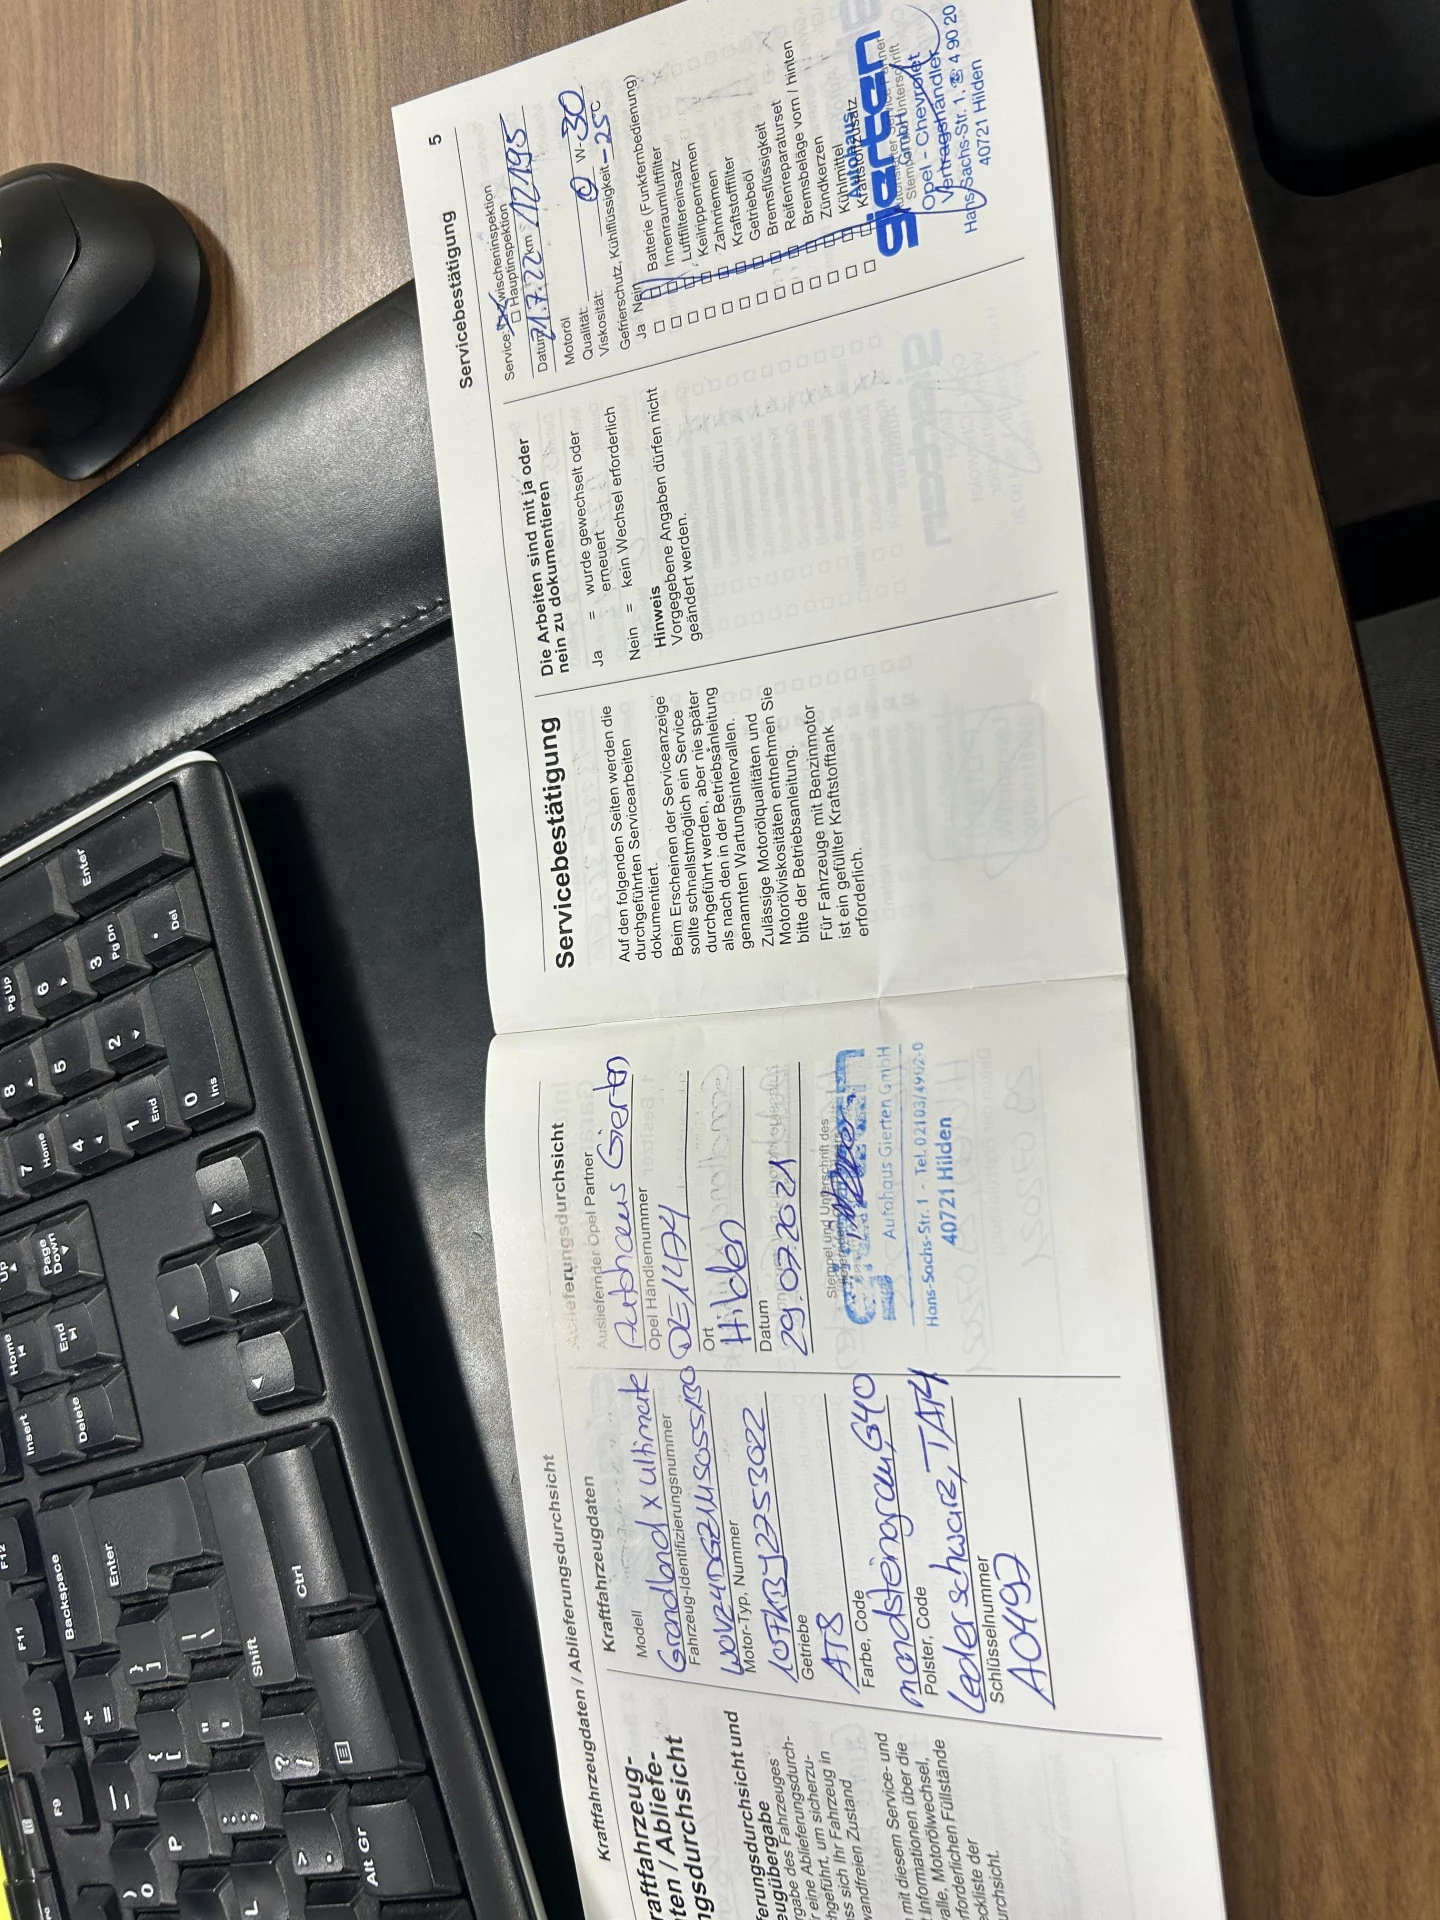 Kraftfahrzeugdaten / Ablieferungsdurchsicht
raftfahrzeug-
ten / Abliefe-
ngsdurchsicht
ferungsdurchsicht und
eugübergabe
rgabe des Fahrzeuges
r eine Ablieferungsdurch-
hgeführt, um sicherzu-
ss sich Ihr Fahrzeug in
wandfreien Zustand
mit diesem Service- und
Informationen über die
valle, Motorölwechsel,
rforderlichen Füllstände
eckliste der
urchsicht.
Kraftfahrzeugdaten
Modell
Grandland x ultimate
Fahrzeug-Identifizierungsnummer
Motor-Typ, Nummer
Getriebe
AT8
Farbe, Code
mondsteingrau, G40
Polster, Code
Leder schwarz, TAT4
Schlüsselnummer
A0497
Ablieferungsdurchsicht
Ausliefernder Opel Partner
Autohaus Gierten
Opel Händlernummer
Ort
Hilden
Datum
29.07.2021
Stempel und Unterschrift des
Autohaus Gierten GmbH
Hans-Sachs-Str. 1 - Tel. 02103/4902-0
40721 Hilden
Servicebestätigung
Auf den folgenden Seiten werden die
durchgeführten Servicearbeiten
dokumentiert.
Beim Erscheinen der Serviceanzeige
sollte schnellstmöglich ein Service
durchgeführt werden, aber nie später
als nach den in der Betriebsanleitung
genannten Wartungsintervallen.
Zulässige Motorölqualitäten und
Motorölviskositäten entnehmen Sie
bitte der Betriebsanleitung.
Für Fahrzeuge mit Benzinmotor
ist ein gefüllter Kraftstofftank
erforderlich.
Die Arbeiten sind mit ja oder
nein zu dokumentieren
Ja = wurde gewechselt oder
erneuert
Nein = kein Wechsel erforderlich
Hinweis
Vorgegebene Angaben dürfen nicht
geändert werden.
Servicebestätigung 5
Service: Zwischeninspektion
Hauptinspektion
Datum 21.7.22 km 12195
Motoröl
Qualität:
Viskosität: 0 W-30
Gefrierschutz, Kühlflüssigkeit -25°C
Ja Nein
Batterie (Funkfernbedienung)
Innenraumluftfilter
Luftfiltereinsatz
Keilrippenriemen
Zahnriemen
Kraftstofffilter
Getriebeöl
Bremsflüssigkeit
Reifenreparaturset
Bremsbeläge vorn / hinten
Zündkerzen
Kühlmittel
Kraftstoffzusatz
Autohaus
gierten
GmbH
Opel - Chevrolet
Vertragshändler
Hans-Sachs-Str. 1, ☎ 4 90 20
40721 Hilden
Insert
Home
Page
Up
Delete
End
Page
Down
F12
F11
F10
F9
Backspace
Enter
Shift
Ctrl
Alt Gr
P
L
7
Home
8
Pg Up
4
5
6
1
End
2
3
Pg Dn
0
Ins
.
Del
Enter